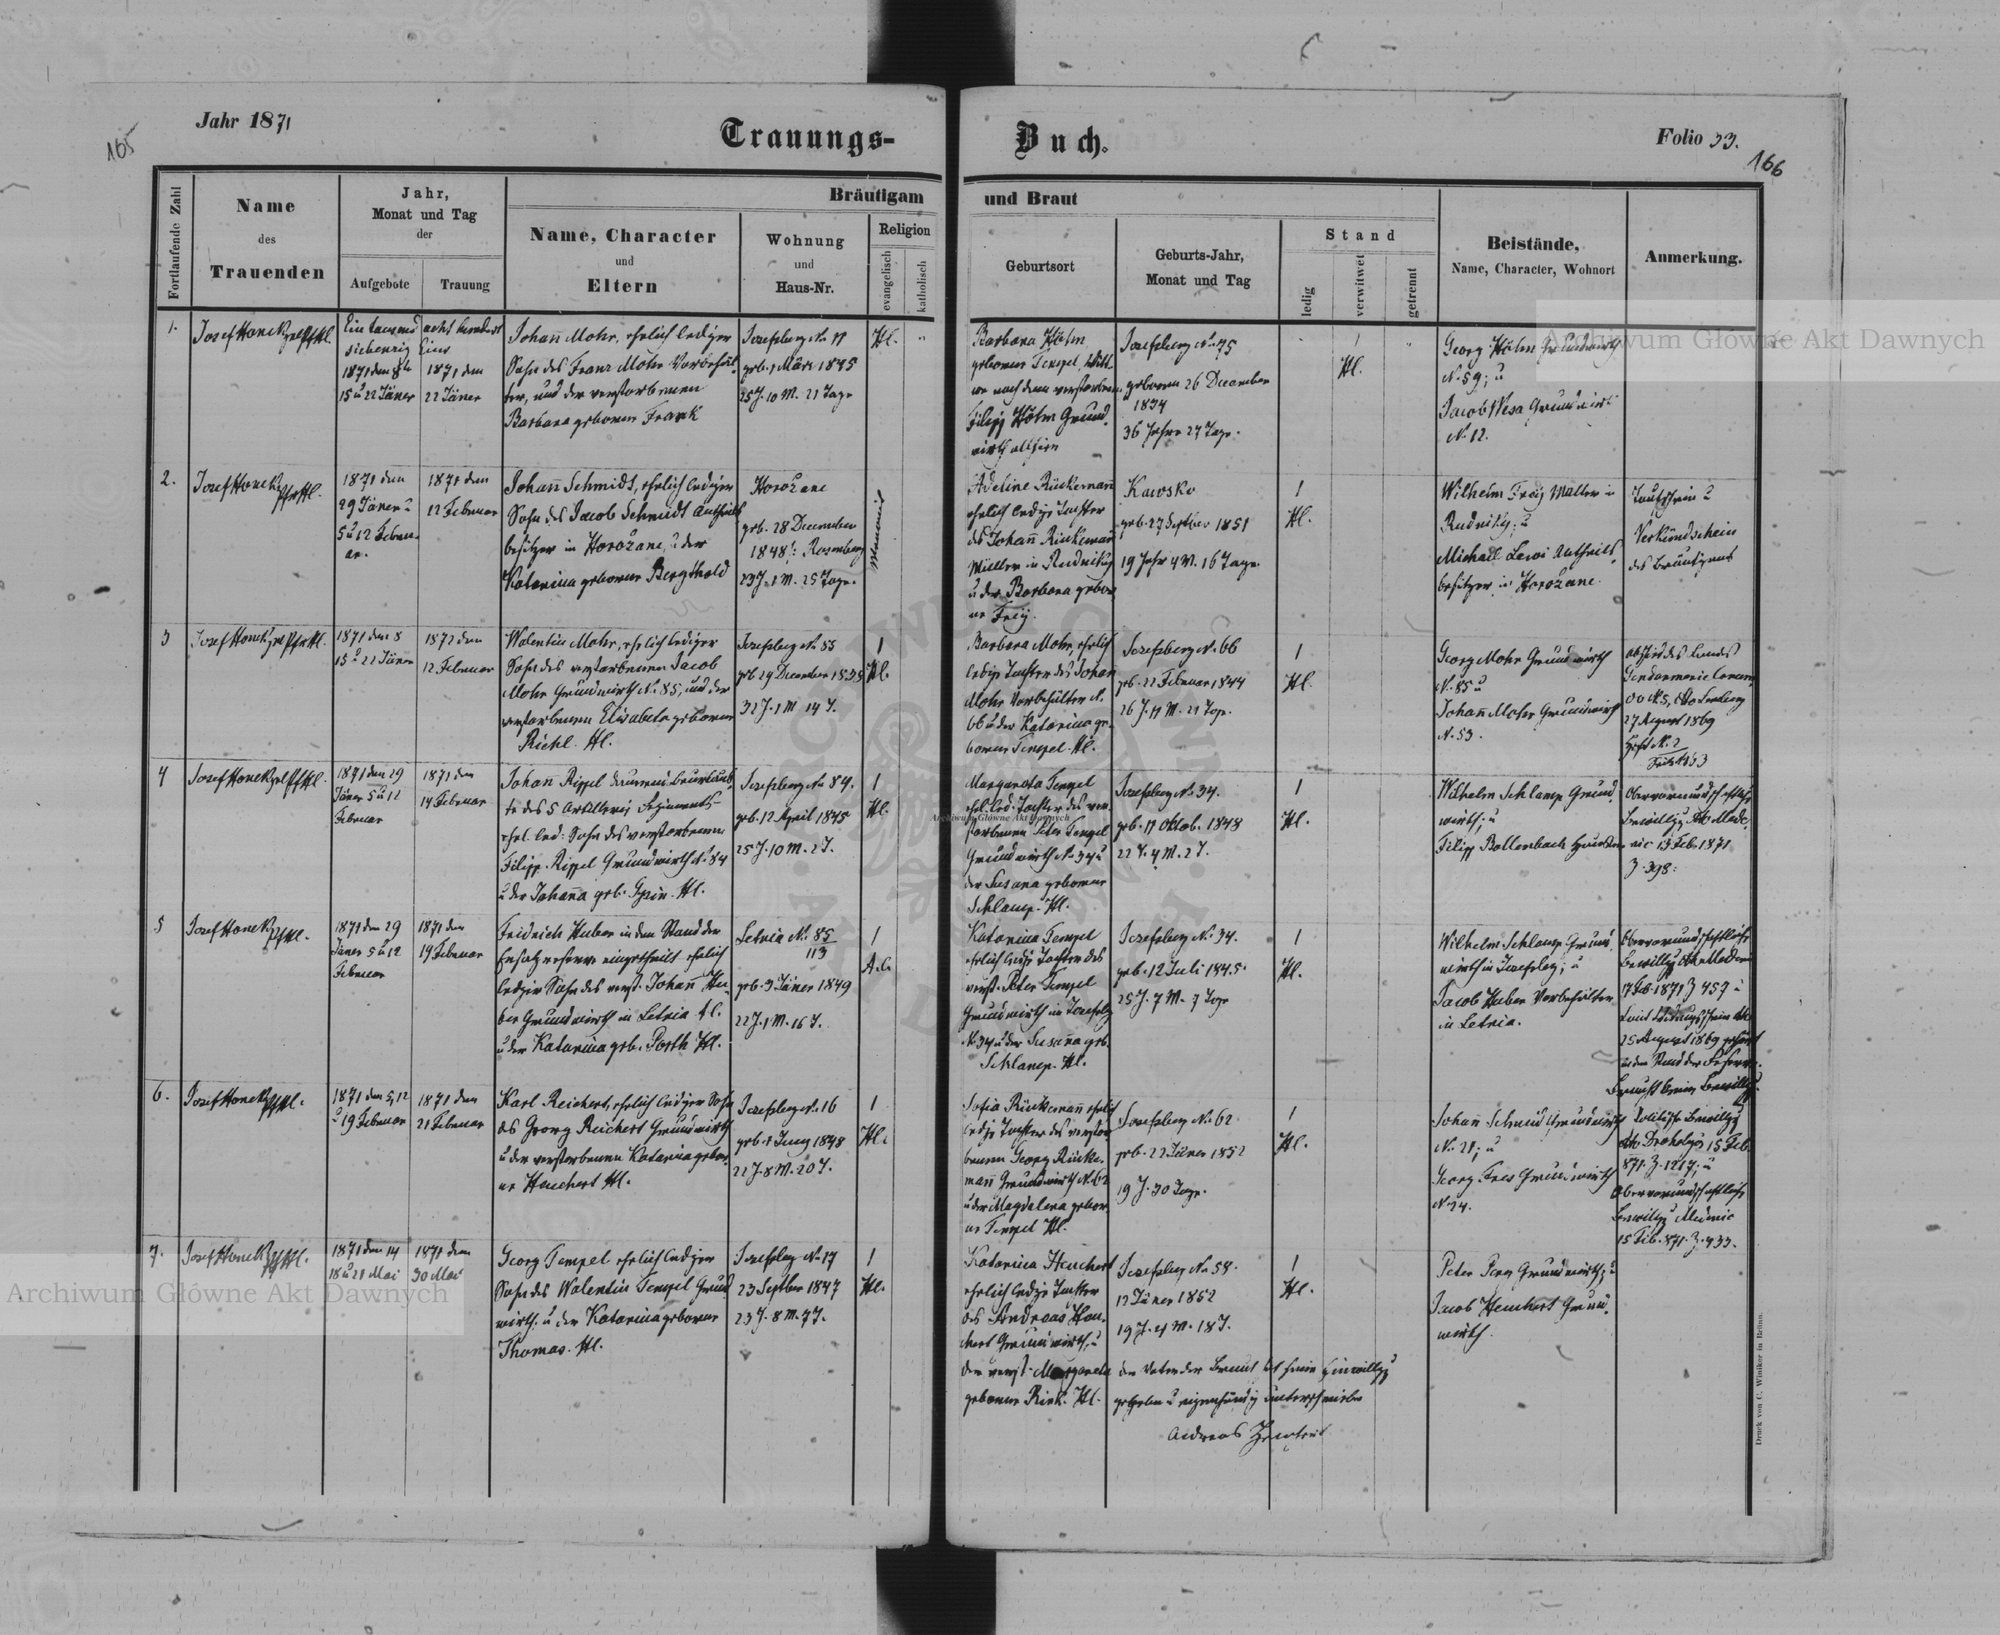 Jahr 1871
Trauungs-
Buch.
Folio 33.
165
166
Fortlaufende Zahl
Name
des
Trauenden
Jahr,
Monat und Tag
der
Aufgebote
Trauung
Bräutigam
und Braut
Name, Character
und
Eltern
Wohnung
und
Haus-Nr.
Religion
evangelisch
katholisch
Geburtsort
Geburts-Jahr,
Monat und Tag
Stand
ledig
verwitwet
getrennt
Beistände,
Name, Character, Wohnort
Anmerkung.
1.
Josef Honek
Ein tausend acht hundert
siebenzig Eins
1871 den 8
15 u 22 Jäner
1871 den
22 Jäner
Johann Mohr, ehelich lediger
Sohn des Franz Mohr Vorbehäl-
ter, und der verstorbenen
Barbara geborene Frank
Josefsberg No
geb. 1 März 1845
25 J. 10 M. 21 Tage
Hl.
Barbara Höhn
geborene Tempel, Witt-
we nach dem verstorbenen
Filipp Höhn Grund-
wirth allhier
Josefsberg No 75
geboren 26 December
1834
36 Jahre 27 Tage.
Hl.
Georg Höhn Grundwirth
No 59; u
Jacob Wesa Grundwirt
No 12.
2.
Josef Honek
1871 den
29 Jäner u
5 u 12 Februar
1871 den
12 Februar
Johann Schmidt, ehelich lediger
Sohn des Jacob Schmidt Antheils
besitzer in Horożane, u der
Katarina geborene Bergthold
Horożane
geb. 28 December
1848 Rosenberg
23 J. 1 M. 25 Tage.
Adeline Rückemann
ehelich ledige Tochter
des Johann Rückemann
Müller in Rudniky
u der Barbara gebore
ne Frey.
Kawsko
geb. 27 Septber 1851
19 Jahr 4 M. 16 Tage
Hl.
Wilhelm Frey Müller in
Rudniky; u
Michael Lewi Antheils
besitzer in Horożane.
Taufschein u
Verkündschein
des Bräutigams
3
Josef Honek
1871 den 8
15 u 22 Jäner
1871 den
12 Februar
Walentin Mohr, ehelich lediger
Sohn des verstorbenen Jacob
Mohr Grundwirth No 85, und der
verstorbenen Elisabeta geborene
Riehl. Hl.
Josefsberg No 85
geb 29 December 1838
32 J. 1 M 14 T.
Hl.
Barbara Mohr, ehelich
ledige Tochter des Johan
Mohr Vorbehälter No
66 u der Katarina ge-
borene Tempel. Hl.
Josefsberg No. 66
geb. 22 Februar 1844
26 J. 11 M. 21 Tage.
Hl.
Georg Mohr Grundwirth
No. 85 u
Johann Mohr Grundwirt
No. 53.
Abschied des Landes
Gendarmerie
No 5, dto Lemberg
27 August 1869
4
Josef Honek
1871 den 29
Jäner 5 u 12
Februar
1871 den
14 Februar
Johan Rippel beurlaub-
te des 5 Artillerie Regiments-
ehel. led: Sohn des verstorbenen
Filipp Rippel Grundwirth No 84
u der Johanna geb. Hl.
Josefsberg No 84.
geb. 12 April 1845
25 J. 10 M. 2 T.
Hl.
Margareta Tempel
ehel. led: Tochter des ver
storbenen Peter Tempel
Grundwirth No 34 u
der Susana geborene
Schlamp. Hl.
Josefsberg No. 34.
geb. 11 Oktob. 1848
22 J. 4 M. 2 T.
Hl.
Wilhelm Schlamp Grund
wirth; u
Filipp Bollenbach
Obervormundschaftliche
15 Feb. 1871
Z. 398.
5
Josef Honek
1871 den 29
Jäner 5 u 12
Februar
1871 den
19 Februar
Fridrich Huber in den Stand der
Ersatzreserve eingetheilt ehelich
lediger Sohn des verst. Johann Hu-
ber Grundwirth in Letnia A.C.
u der Katarina geb. Porth Hl.
Letnia No. 85
113
geb. 3 Jäner 1849
22 J. 1 M. 16 T.
A.C.
Katarina Tempel
ehelich ledige Tochter des
verst. Peter Tempel
Grundwirth in Josefsbg
No. 34 u der Susana geb.
Schlamp. Hl.
Josefsberg No. 34.
geb. 12 Juli 1845.
25 J. 7 M. 7 Tage
Hl.
Wilhelm Schlamp Grund
wirth in Josefsbg; u
Jacob Huber Vorbehälter
in Letnia.
Obervormundschaftliche
17 Feb. 1871 Z 457
25 August 1869
6.
Josef Honek
1871 den 5, 12
u 19 Februar
1871 den
21 Februar
Karl Reichert, ehelich lediger Sohn
des Georg Reichert Grundwirth
u der verstorbenen Katarina gebor-
ne Heuchert Hl.
Josefsberg No. 16
geb. 1 Juny 1848
22 J. 8 M. 20 T.
Hl.
Sofia Rückemann ehelich
ledige Tochter des verstor
benen Georg Rücke-
mann Grundwirth No. 62
u der Magdalena gebor-
ne Tempel Hl.
Josefsberg No. 62
geb. 22 Jäner 1852
19 J. 30 Tage.
Hl.
Johann Schmid Grundwirth
No. 21; u
Georg Fres Grundwirth
No 24.
Politische Bewilligg
dto Drohobycz 15 Feb.
871. Z. 1217; u
Obervormundschaftliche
Bewilligg Medenice
15 Feb. 871. Z. 433.
7.
Josef Honek
1871 den 14
18 u 21 Mai
1871 den
30 Mai
Georg Tempel ehelich lediger
Sohn des Walentin Tempel Grund
wirth. u der Katarina geborene
Thomas. Hl.
Josefsberg No. 17
23 Septber 1847
23 J. 8 M. 7 T.
Hl.
Katarina Heuchert
ehelich ledige Tochter
des Andreas Heu-
chert Grundwirth, u
der verst. Margareta
geborene Rink. Hl.
Josefsberg No 58.
12 Jäner 1852
19 J. 4 M. 18 T.
Hl.
der Vater der Braut hat seine Einwilligg
gegeben u eigenhändig unterschrieben
Andreas
Peter Grundwirth; u
Jacob Heuchert Grund-
wirth.
Druck von C. Winiker in Brünn.
Archiwum Główne Akt Dawnych
Archiwum Główne Akt Dawnych
Archiwum Główne Akt Dawnych